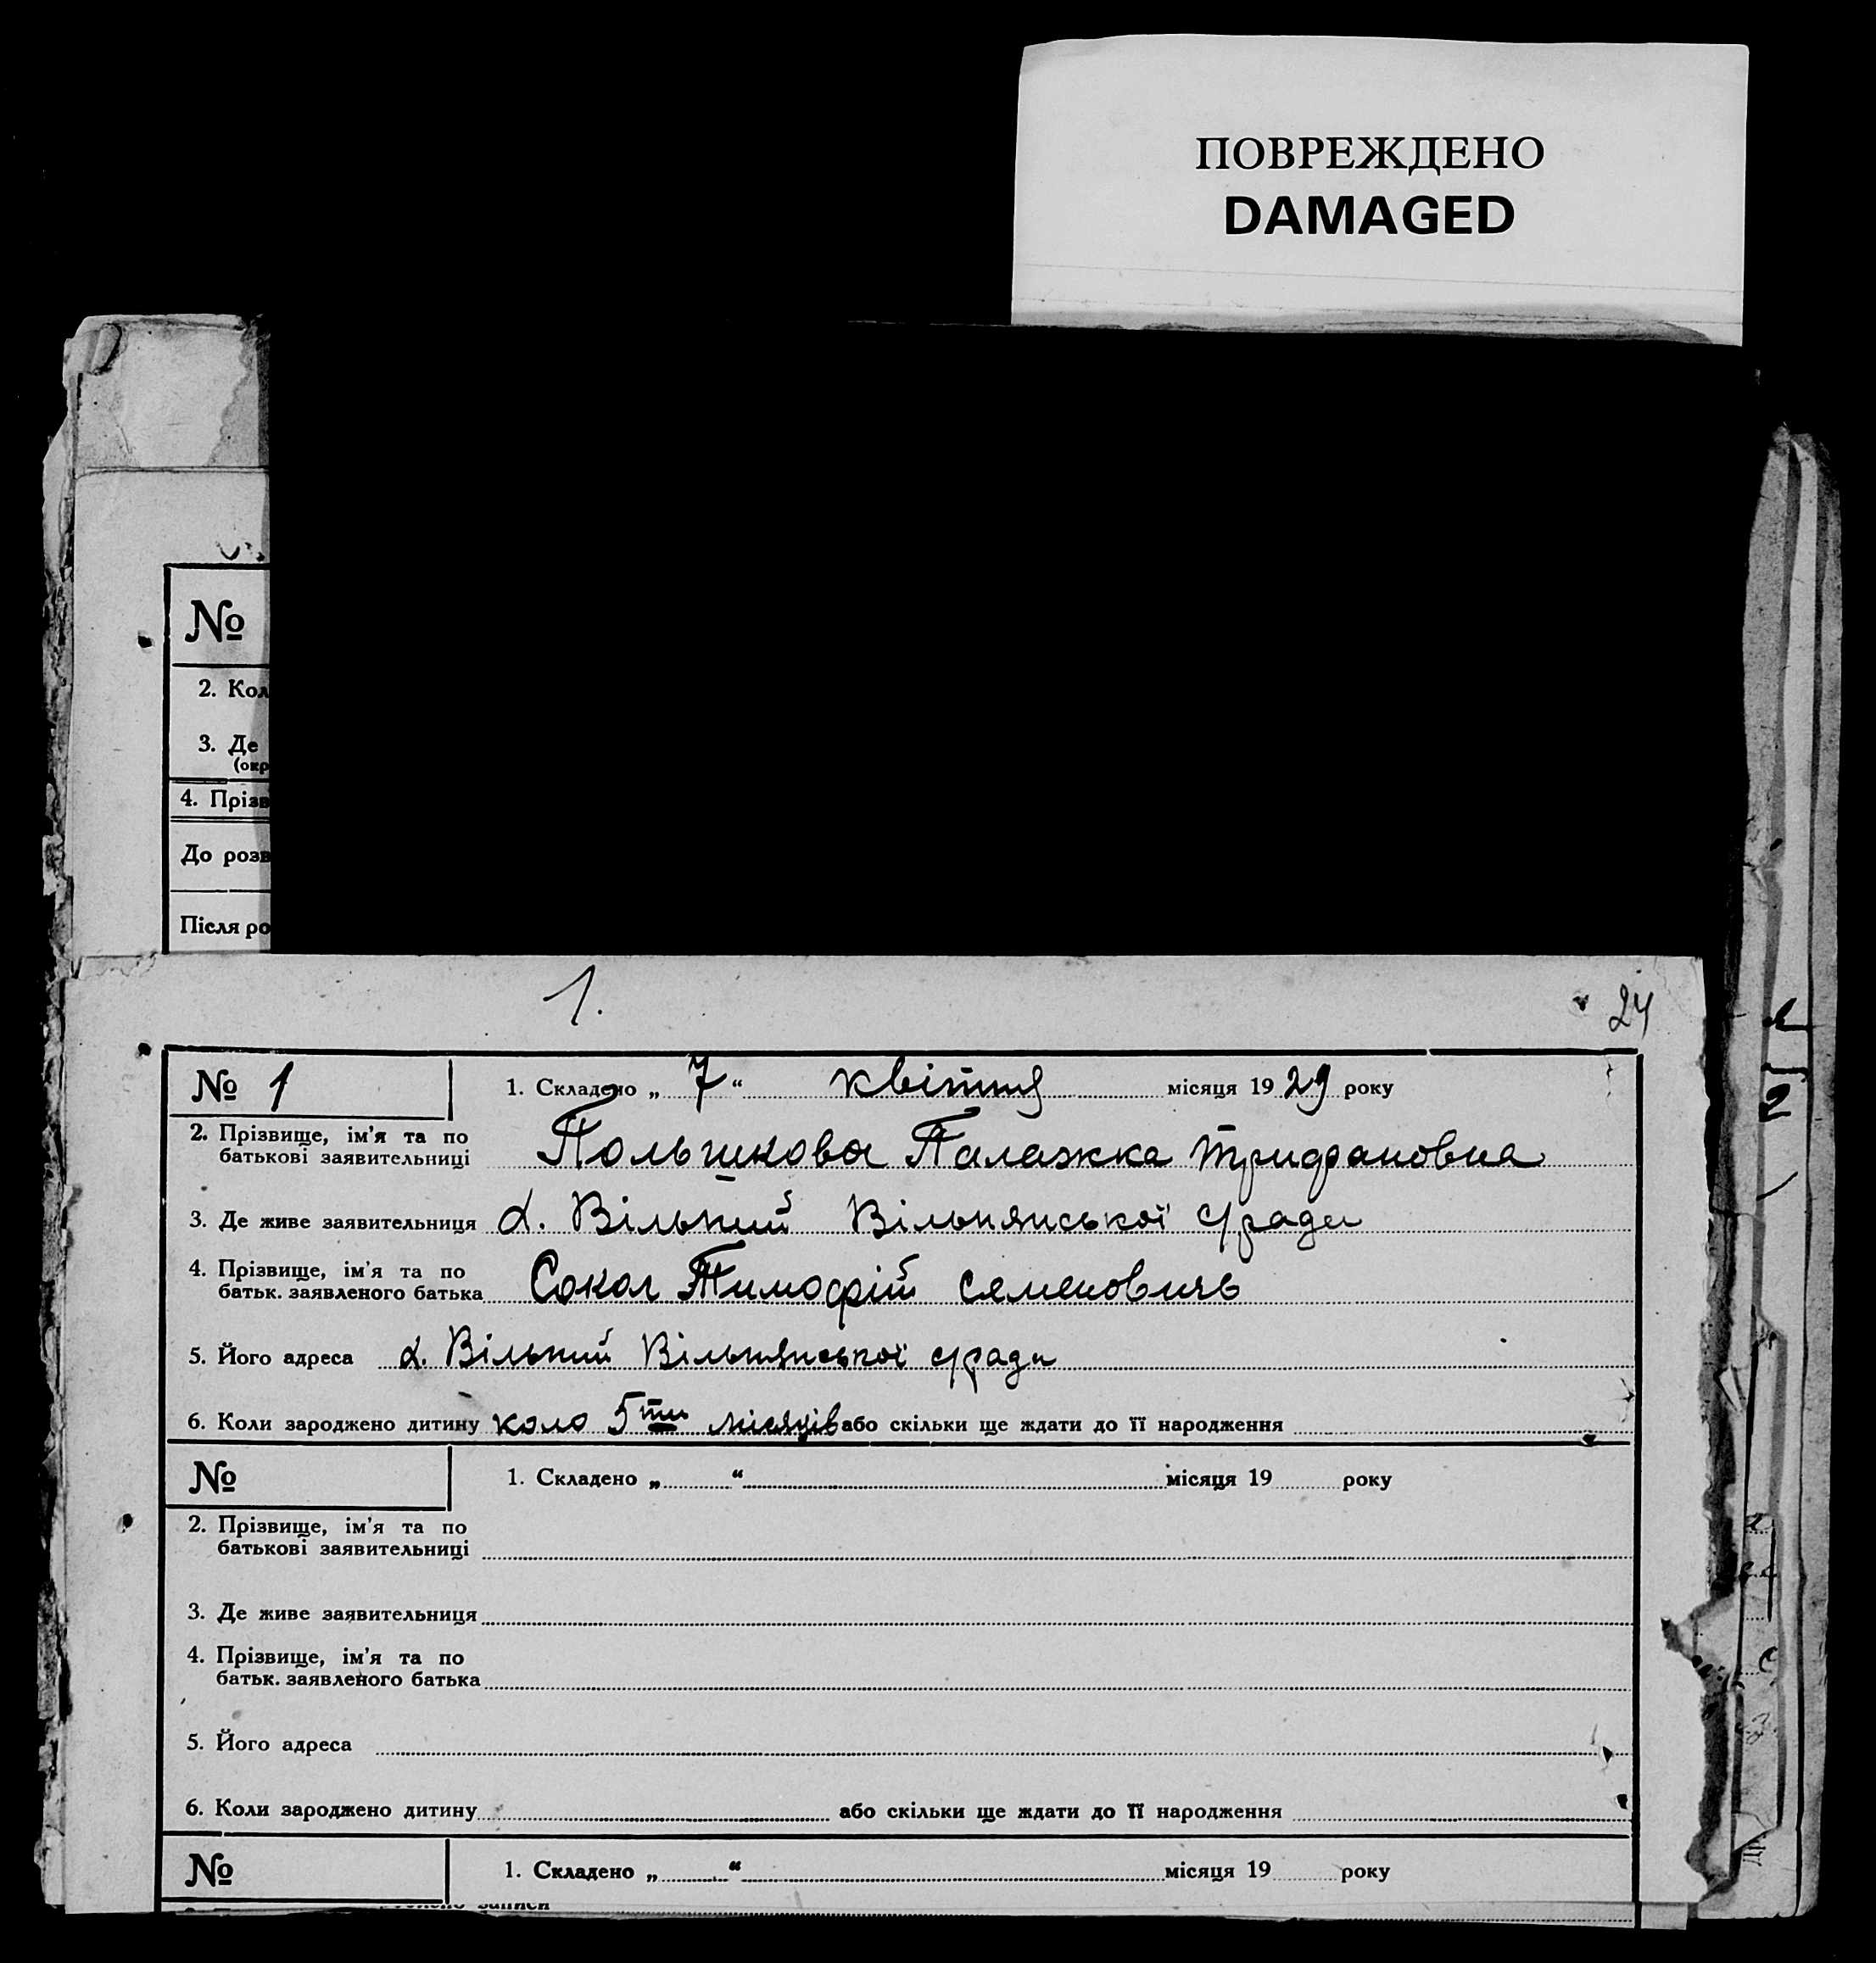 ПОВРЕЖДЕНО
DAMAGED
№
2. Кол
3. Де
(окр
4. Прізв
До розв
Після ро
1.
24
№ 1
1. Складено „ 7 “ квітня місяця 19 29 року
2. Прізвище, ім'я та по
батькові заявительниці
Польшкова Палажка Трифановна
3. Де живе заявительниця х. Вільний Вільнянської с/ради
4. Прізвище, ім'я та по
батьк. заявленого батька
Сокол Тимофій Семеновичь
5. Його адреса х. Вільний Вільнянської с/ради
6. Коли зароджено дитину коло 5ти місяців або скільки ще ждати до її народження
№
1. Складено „ “ місяця 19 року
2. Прізвище, ім'я та по
батькові заявительниці
3. Де живе заявительниця
4. Прізвище, ім'я та по
батьк. заявленого батька
5. Його адреса
6. Коли зароджено дитину або скільки ще ждати до її народження
№
1. Складено „ “ місяця 19 року